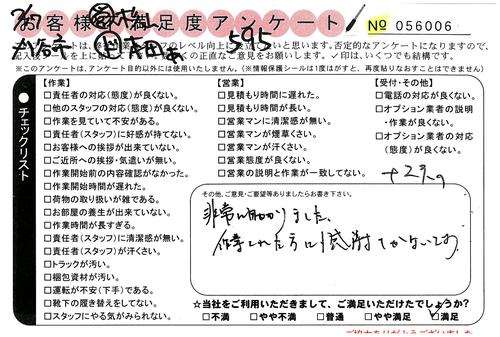 お客様満足度アンケート
№ 056006
2/7
595
※このアンケートは、アンケート目的以外には使用いたしません。(※情報保護シールは1度はがすと、再度貼りなおすことはできません)
チェックリスト
【作業】
□責任者の対応(態度)が良くない。
□他のスタッフの対応(態度)が良くない。
□作業を見ていて不安がある。
□責任者(スタッフ)に好感が持てない。
□お客様への挨拶が出来ていない。
□ご近所への挨拶・気遣いが無い。
□作業開始前の内容確認がなかった。
□作業開始時間が遅れた。
□荷物の取り扱いが雑である。
□お部屋の養生が出来ていない。
□作業時間が長すぎる。
□責任者(スタッフ)に清潔感が無い。
□責任者(スタッフ)が汗くさい。
□トラックが汚い。
□梱包資材が汚い。
□運転が不安(下手)である。
□靴下の履き替えをしてない。
□スタッフにやる気がみられない。
【営業】
□見積もり時間に遅れた。
□見積もり時間が長い。
□営業マンに清潔感が無い。
□営業マンが煙草くさい。
□営業マンが汗くさい。
□営業態度が良くない。
□営業の説明と作業が一致してない。
【受付・その他】
□電話の対応が良くない。
□オプション業者の説明
・作業が良くない。
□オプション業者の対応
(態度)が良くない。
その他、ご意見・ご要望等ありましたらお書き下さい。
非常に助かりました。
作業された方には感謝しかないです。
☆当社をご利用いただきまして、ご満足いただけたでしょうか?
□不満 □やや不満 □普通 □やや満足 ☑満足
ご協力ありがとうございました